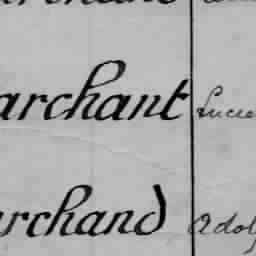 archant Lucie
rchand Adolp